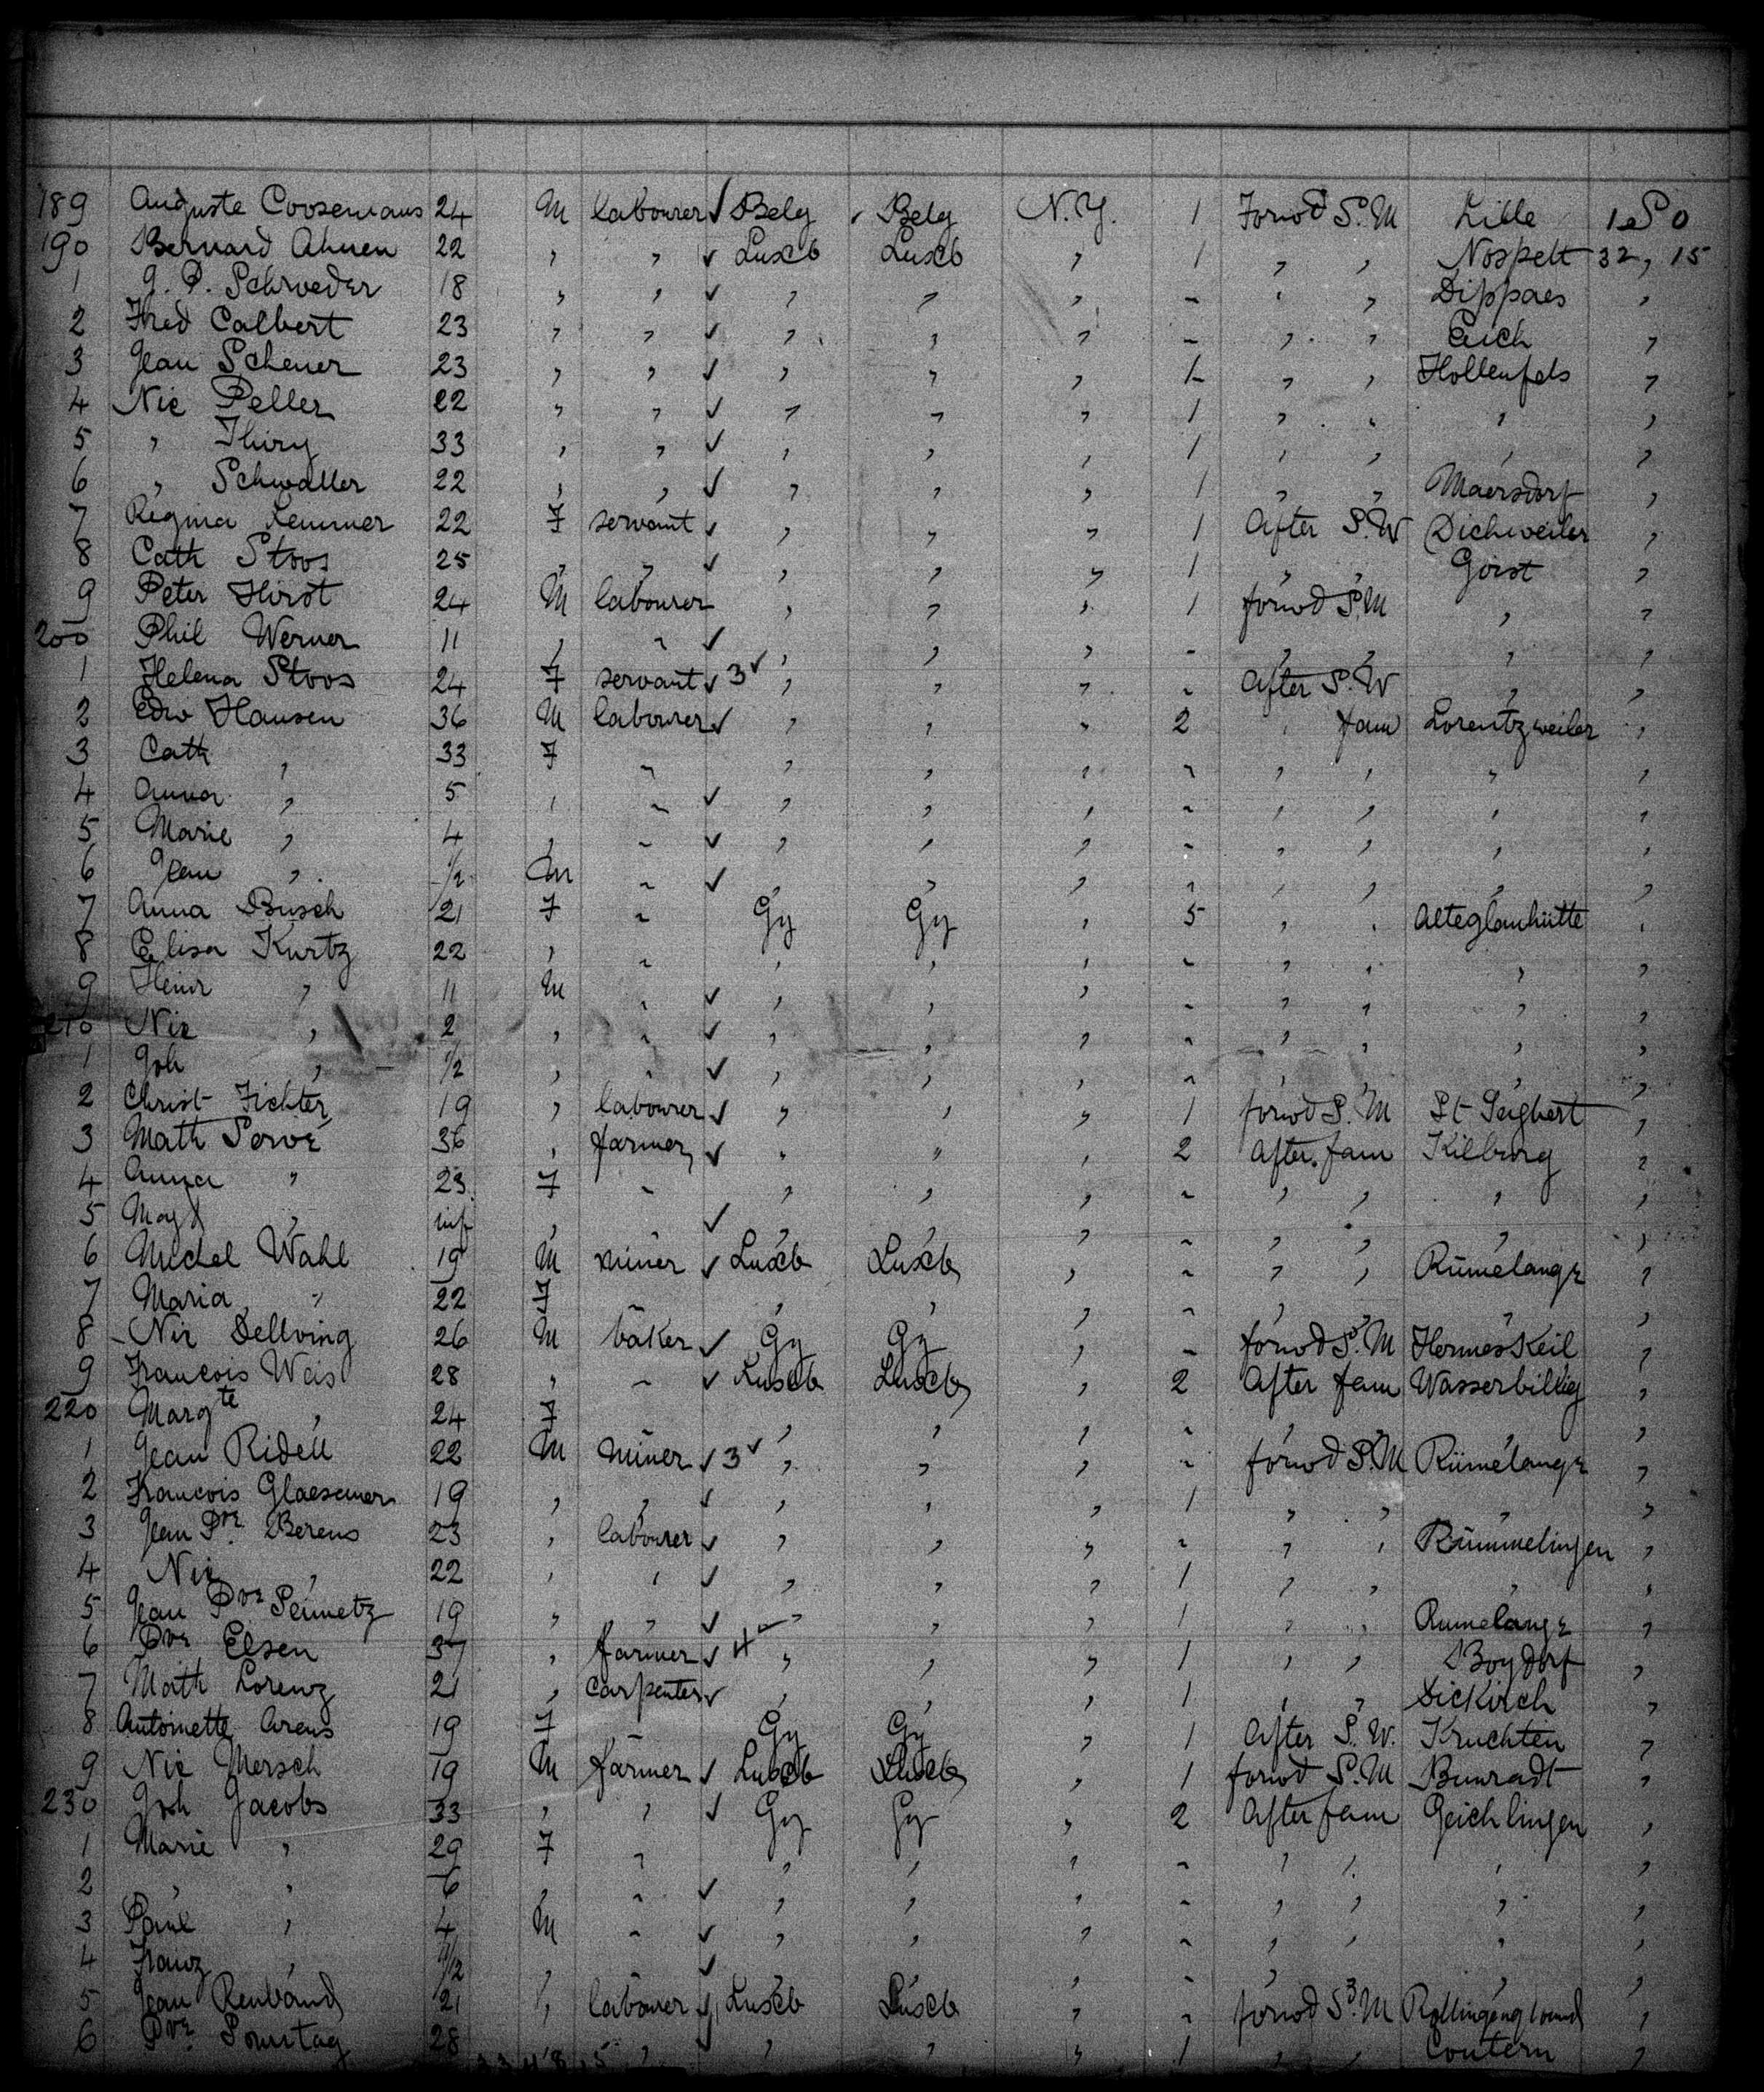 189 Auguste Coosemans 24 M labourer ✓ Belg Belg N.Y. 1 Forwd S.M Lille 1 S 0
190 Bernard Ahnen 22 , , ✓ Luxb Luxb , 1 , , Nospelt 32, 15
1 J. P. Schroeder 18 , , ✓ , , , - , , Dippaes ,
2 Fred Calbert 23 , , ✓ , , , - , , Eich ,
3 Jean Scheuer 23 , , ✓ , , , 1 , , Hollenfels ,
4 Nic Peller 22 , , ✓ , , , 1 , , , ,
5 , Thiry 33 , , ✓ , , , 1 , , , ,
6 , Schwaller 22 , , ✓ , , , 1 , , Maersdorf ,
7 Regina Lemmer 22 F servant ✓ , , , 1 After S.W Dichweiler ,
8 Cath Stoos 25 , , ✓ , , , 1 , , Gorst ,
9 Peter Hirst 24 M labourer , , , 1 forwd S.M , ,
200 Phil Werner 11 , " ✓ , , , - , , , ,
1 Helena Stoos 24 F servant ✓ 3 ✓ , , , - After S.W , ,
2 Edw Hansen 36 M labourer ✓ , , , 2 , fam Lorentzweiler ,
3 Cath , 33 F - , , , - , , , ,
4 Anna , 5 , - ✓ , , , - , , , ,
5 Marie , 4 , - ✓ , , , - , , , ,
6 Jean , 1/2 M - ✓ , , , - , , , ,
7 Anna Busch 21 F - Gy Gy , 5 , , Alteglanhütte ,
8 Elisa Kurtz 22 , - , , , - , , , ,
9 Heinr , 11 M - ✓ , , , - , , , ,
210 Nic , 2 , - ✓ , , , - , , , ,
1 Joh , 1/2 , - ✓ , , , - , , , ,
2 Christ Fichter 19 , labourer ✓ , , , 1 forwd S.M St Ingbert ,
3 Math Servé 36 , farmer ✓ , " , 2 After fam Kilburg ,
4 Anna " 23 F - , , , - , , , ,
5 Magd , inf , - ✓ , , , - , , , ,
6 Michel Wahl 19 M miner ✓ Luxb Luxb , - , , Rümelange ,
7 Maria " 22 F - , , , - , , , ,
8 Nic Dellving 26 M baker ✓ Gy Gy , - forwd S.M Hermeskeil ,
9 Francois Weis 28 , - ✓ Luxb Luxb , 2 After fam Wasserbillig ,
220 Margte , 24 F , , , - , , ,
1 Jean Ridell 22 M miner ✓ 3 ✓ , , , - forwd S.M Rümelange ,
2 Francois Glaesener 19 , , ✓ , , , 1 , , , ,
3 Jean Prre Berens 23 , labourer ✓ , , , - , , Rümmelingen ,
4 Nic , 22 , , ✓ , , , 1 , , , ,
5 Jean Prre Peimetz 19 , , ✓ , , , 1 , , Rumelange ,
6 Prre Elsen 37 , farmer ✓ 4 , , , 1 , , Boydorf ,
7 Math Lorenz 21 , carpenter ✓ , , , 1 , , Dickirch ,
8 Antoinette Arens 19 F Gy Gy , 1 After S.W. Kruchten ,
9 Nic Mersch 19 M farmer ✓ Luxb Luxb , 1 forwd S.M Bunradt ,
230 Joh Jacobs 33 , , ✓ Gy Gy , 2 After fam Geichlingen ,
1 Marie , 29 F - , , , - , , , ,
2 , , 6 , - ✓ , , , - , , , ,
3 Paul , 4 M - ✓ , , , - , , , ,
4 Franz , , ✓ , - , , ,
5 Jean Renband 21 , labourer ✓ Luxb Luxb , - forwd S.M Rollingenground ,
6 Prre Sonntag 28 , ✓ , , , 1 , , Contern ,